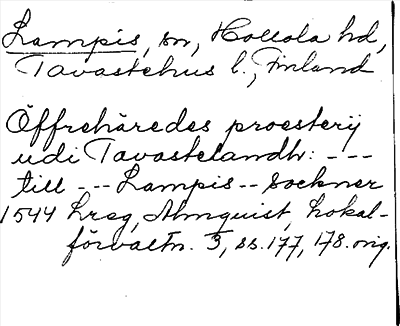 Lampis, sn, Hollola hd,
Tavastehus l., Finland
Öffrehäredes proesterij
udi Tavastelandh: ----
till --- Lampis -- Sockner
1544 hrsg, Almquist, Lokal-
förvaltn. 3, ss. 177, 178. orig.